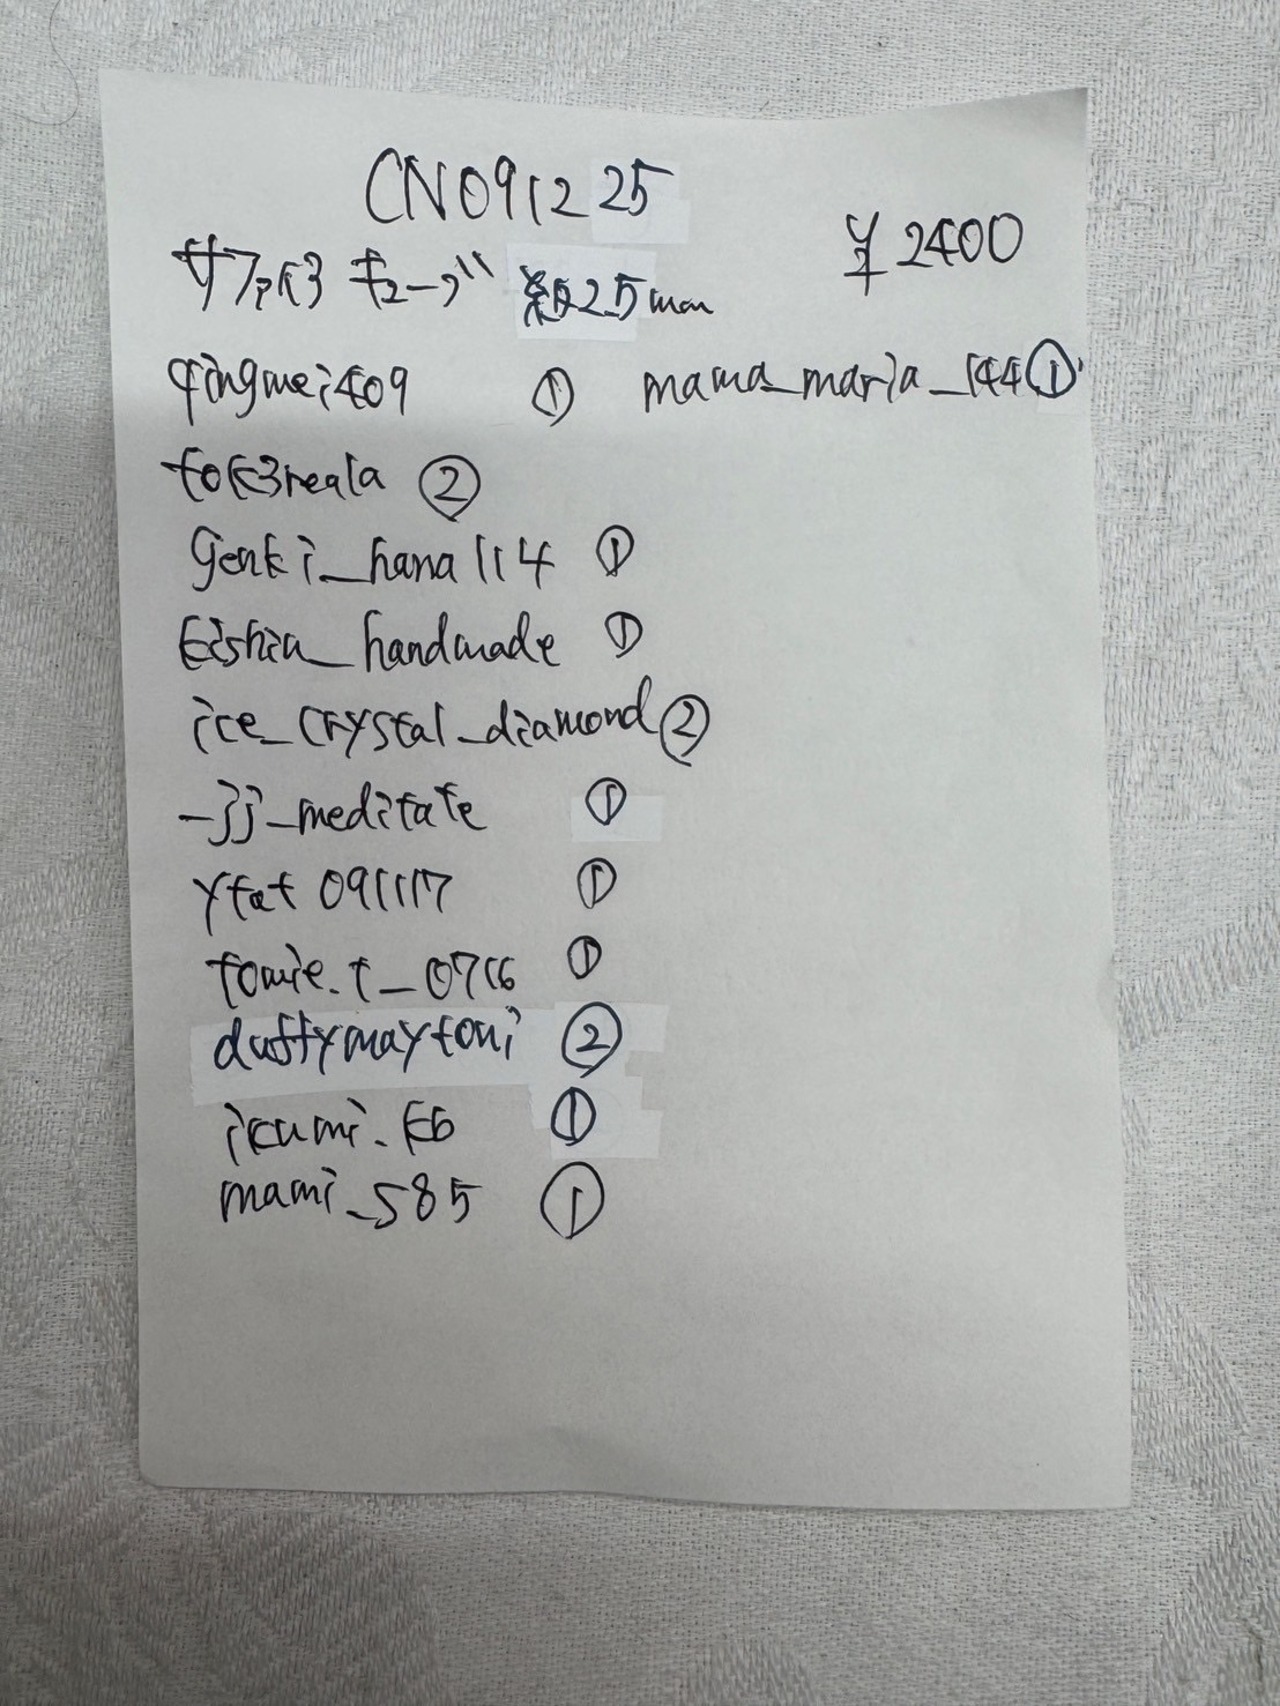 CN091225
¥2400
サファイヤ キューブ 約25mm
qingmei409 ①
mama_maria_144 ①
tok3reala ②
genki_hana114 ①
Eishin_handmade ①
ice_crystal_diamond ②
_jj_meditate ①
ytat091117 ①
tomie.t_0716 ①
duffymaytoni ②
ikumi.k6 ①
mami_585 ①